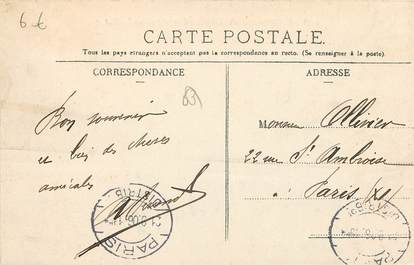 6€
CARTE POSTALE.
Tous les pays étrangers n'acceptent pas la correspondance au recto. (Se renseigner à la poste).
CORRESPONDANCE
ADRESSE
83
Bon souvenir
et bien des choses
amicales
Monsieur Ollivier
22 rue St Ambroise
à Paris (XI)
PARIS
DISTRIB